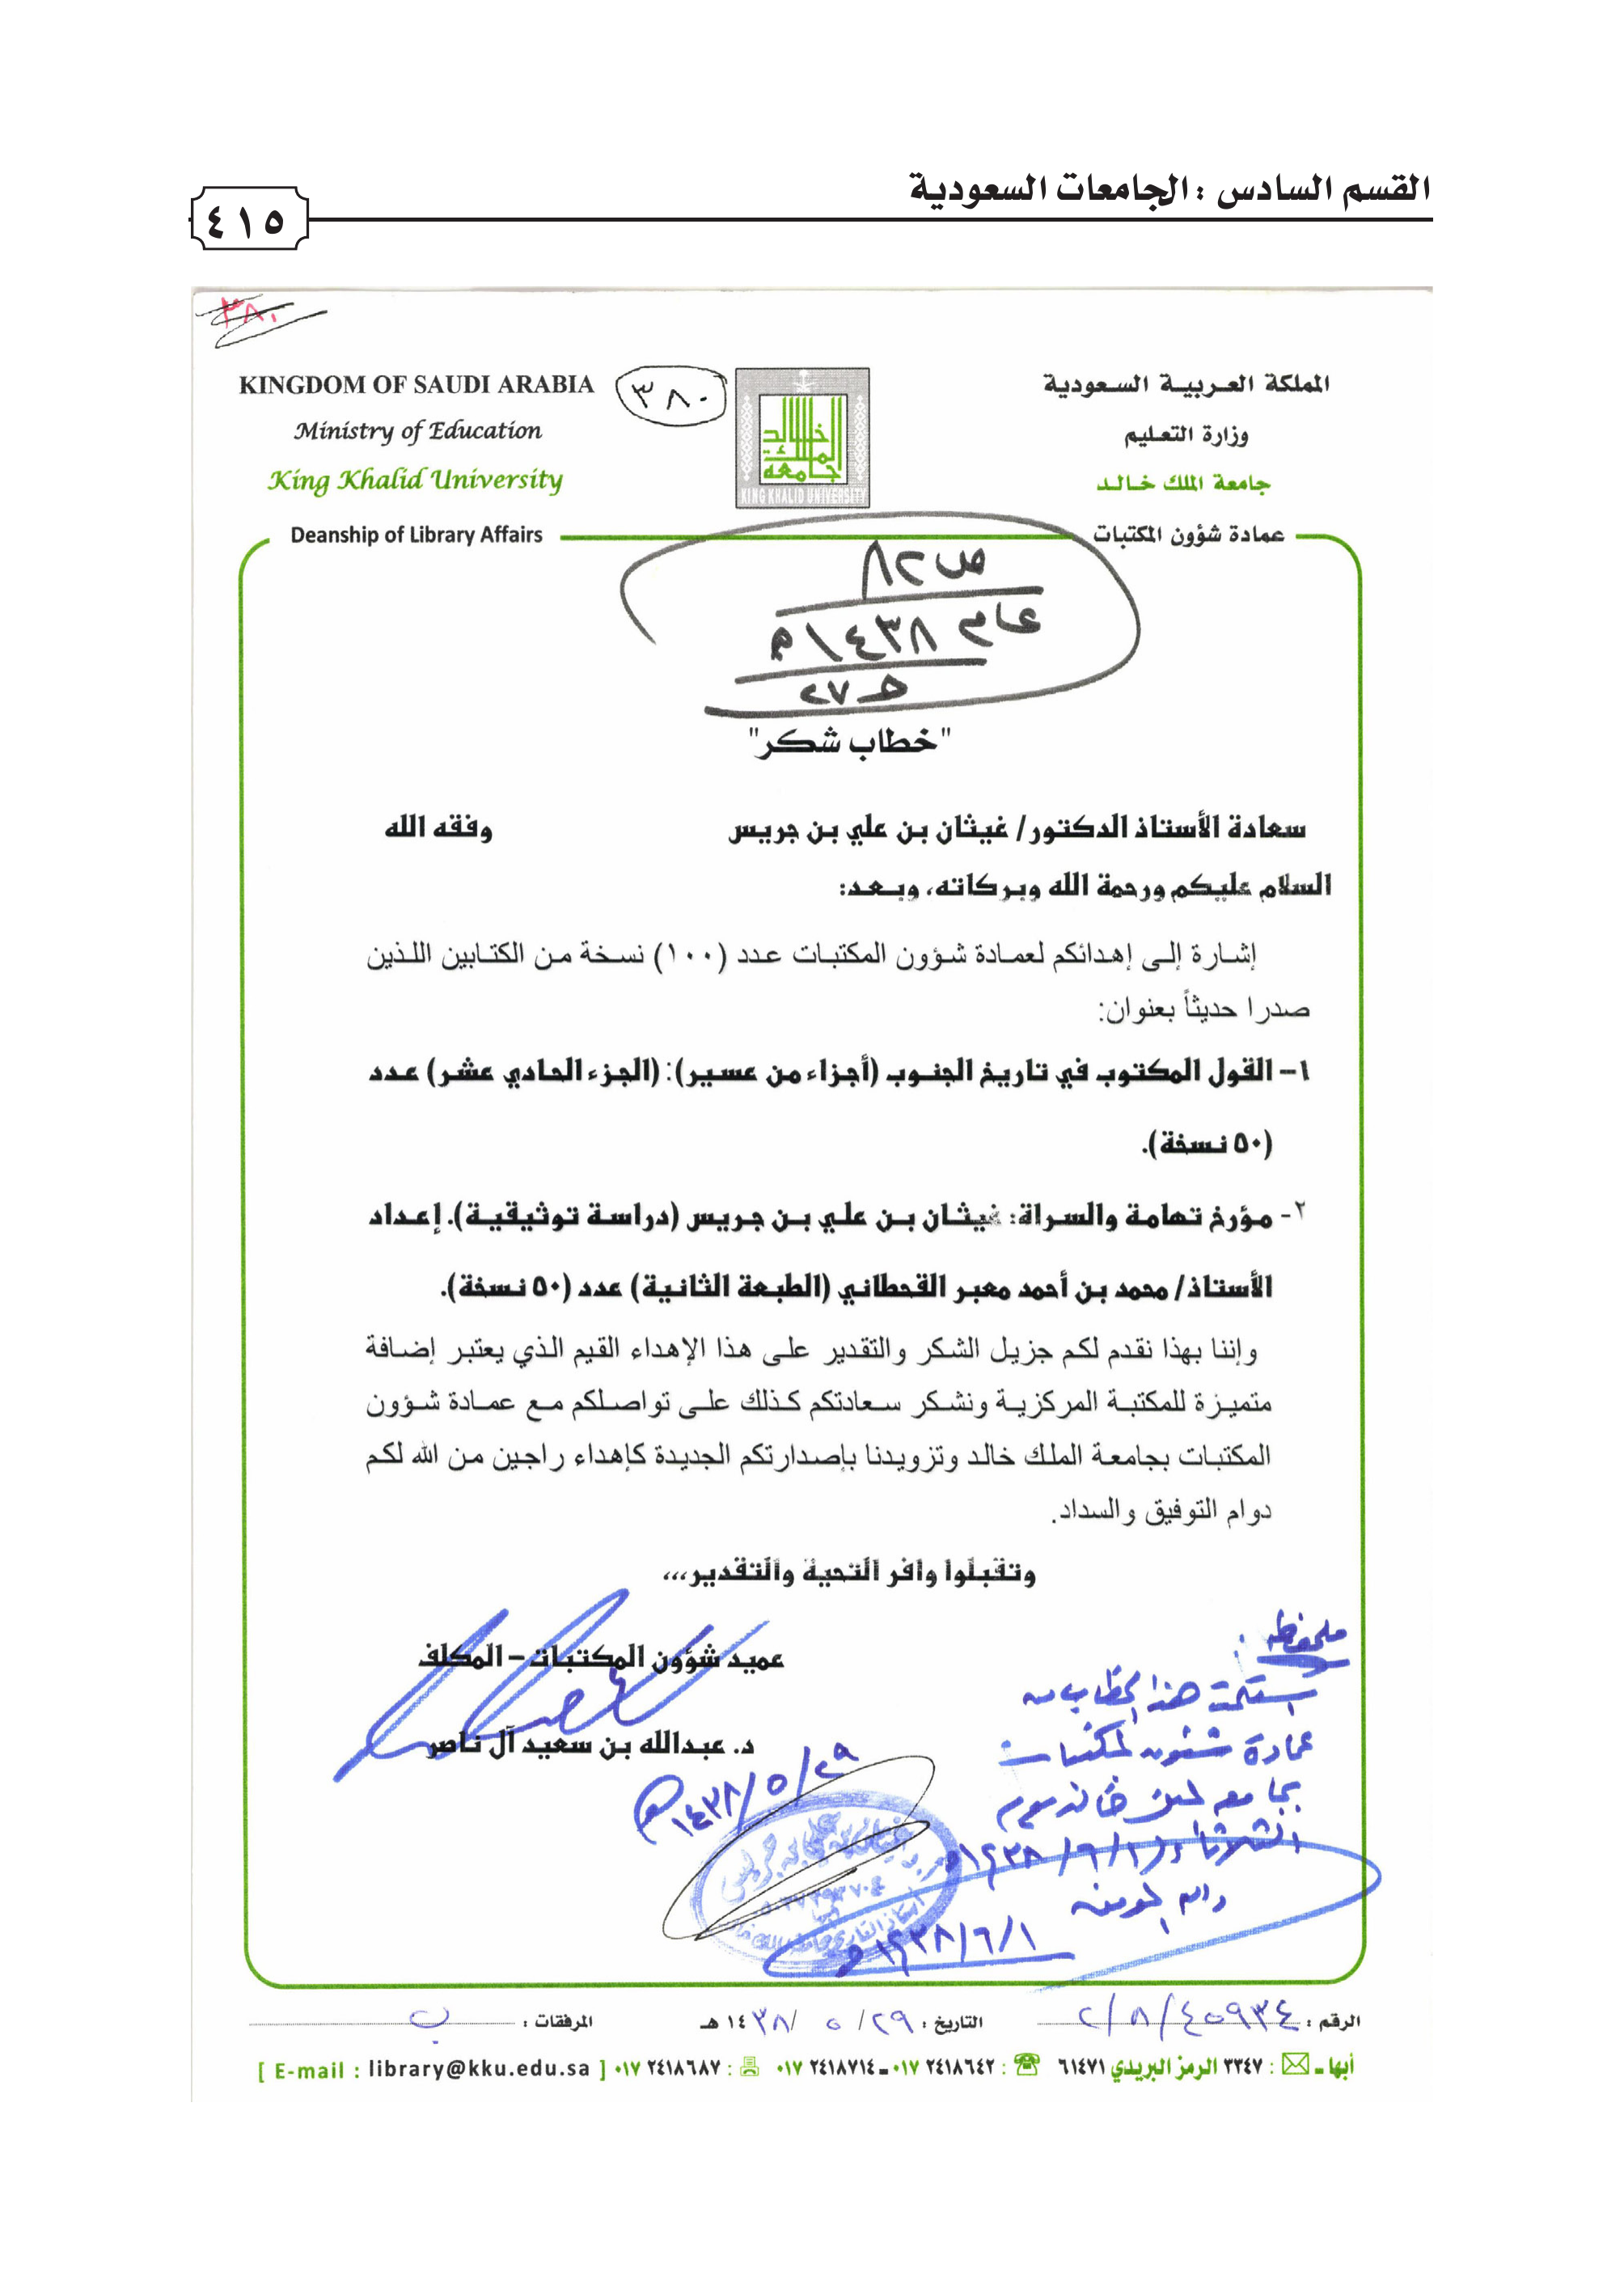 القسم السادس : الجامعات السعودية
٤١٥
٣٨٠
KINGDOM OF SAUDI ARABIA
Ministry of Education
King Khalid University
Deanship of Library Affairs
٣٨٠
جامعة الملك خالد
KING KHALID UNIVERSITY
المملكة العربية السعودية
وزارة التعليم
جامعة الملك خالد
عمادة شؤون المكتبات
ص٢٨
عام ١٤٣٨هـ
"خطاب شكر"
سعادة الأستاذ الدكتور/ غيثان بن علي بن جريس وفقه الله
السلام عليكم ورحمة الله وبركاته، وبعد:
إشارة إلى إهدائكم لعمادة شؤون المكتبات عدد (١٠٠) نسخة من الكتابين اللذين
صدرا حديثاً بعنوان:
١- القول المكتوب في تاريخ الجنوب (أجزاء من عسير): (الجزء الحادي عشر) عدد
(٥٠ نسخة).
٢- مؤرخ تهامة والسراة: غيثان بن علي بن جريس (دراسة توثيقية). إعداد
الأستاذ/ محمد بن أحمد معبر القحطاني (الطبعة الثانية) عدد (٥٠ نسخة).
وإننا بهذا نقدم لكم جزيل الشكر والتقدير على هذا الإهداء القيم الذي يعتبر إضافة
متميزة للمكتبة المركزية ونشكر سعادتكم كذلك على تواصلكم مع عمادة شؤون
المكتبات بجامعة الملك خالد وتزويدنا بإصدارتكم الجديدة كإهداء راجين من الله لكم
دوام التوفيق والسداد.
وتقبلوا وافر التحية والتقدير،،،
عميد شؤون المكتبات – المكلف
د. عبدالله بن سعيد آل ناصر
١٤٣٨/٥/٢٩هـ
ملحوظة :
استلمت هذا الخطاب من
عمادة شئون المكتبات
بجامعة الملك خالد يوم
الثلاثاء ١٤٣٨/٦/١هـ
والله الموفق
١٤٣٨/٦/١هـ
الرقم : ٢/٨/٤٥٩٣٤ التاريخ : ٢٩/ ٥ /١٤٣٨ هـ المرفقات : ب
أبها ـ : ٣٣٤٧ الرمز البريدي ٦١٤٧١ : ٠١٧ ٢٤١٨٦٤٢ ـ ٠١٧ ٢٤١٨٧١٤ : ٠١٧ ٢٤١٨٦٨٧ [ E-mail : library@kku.edu.sa ]